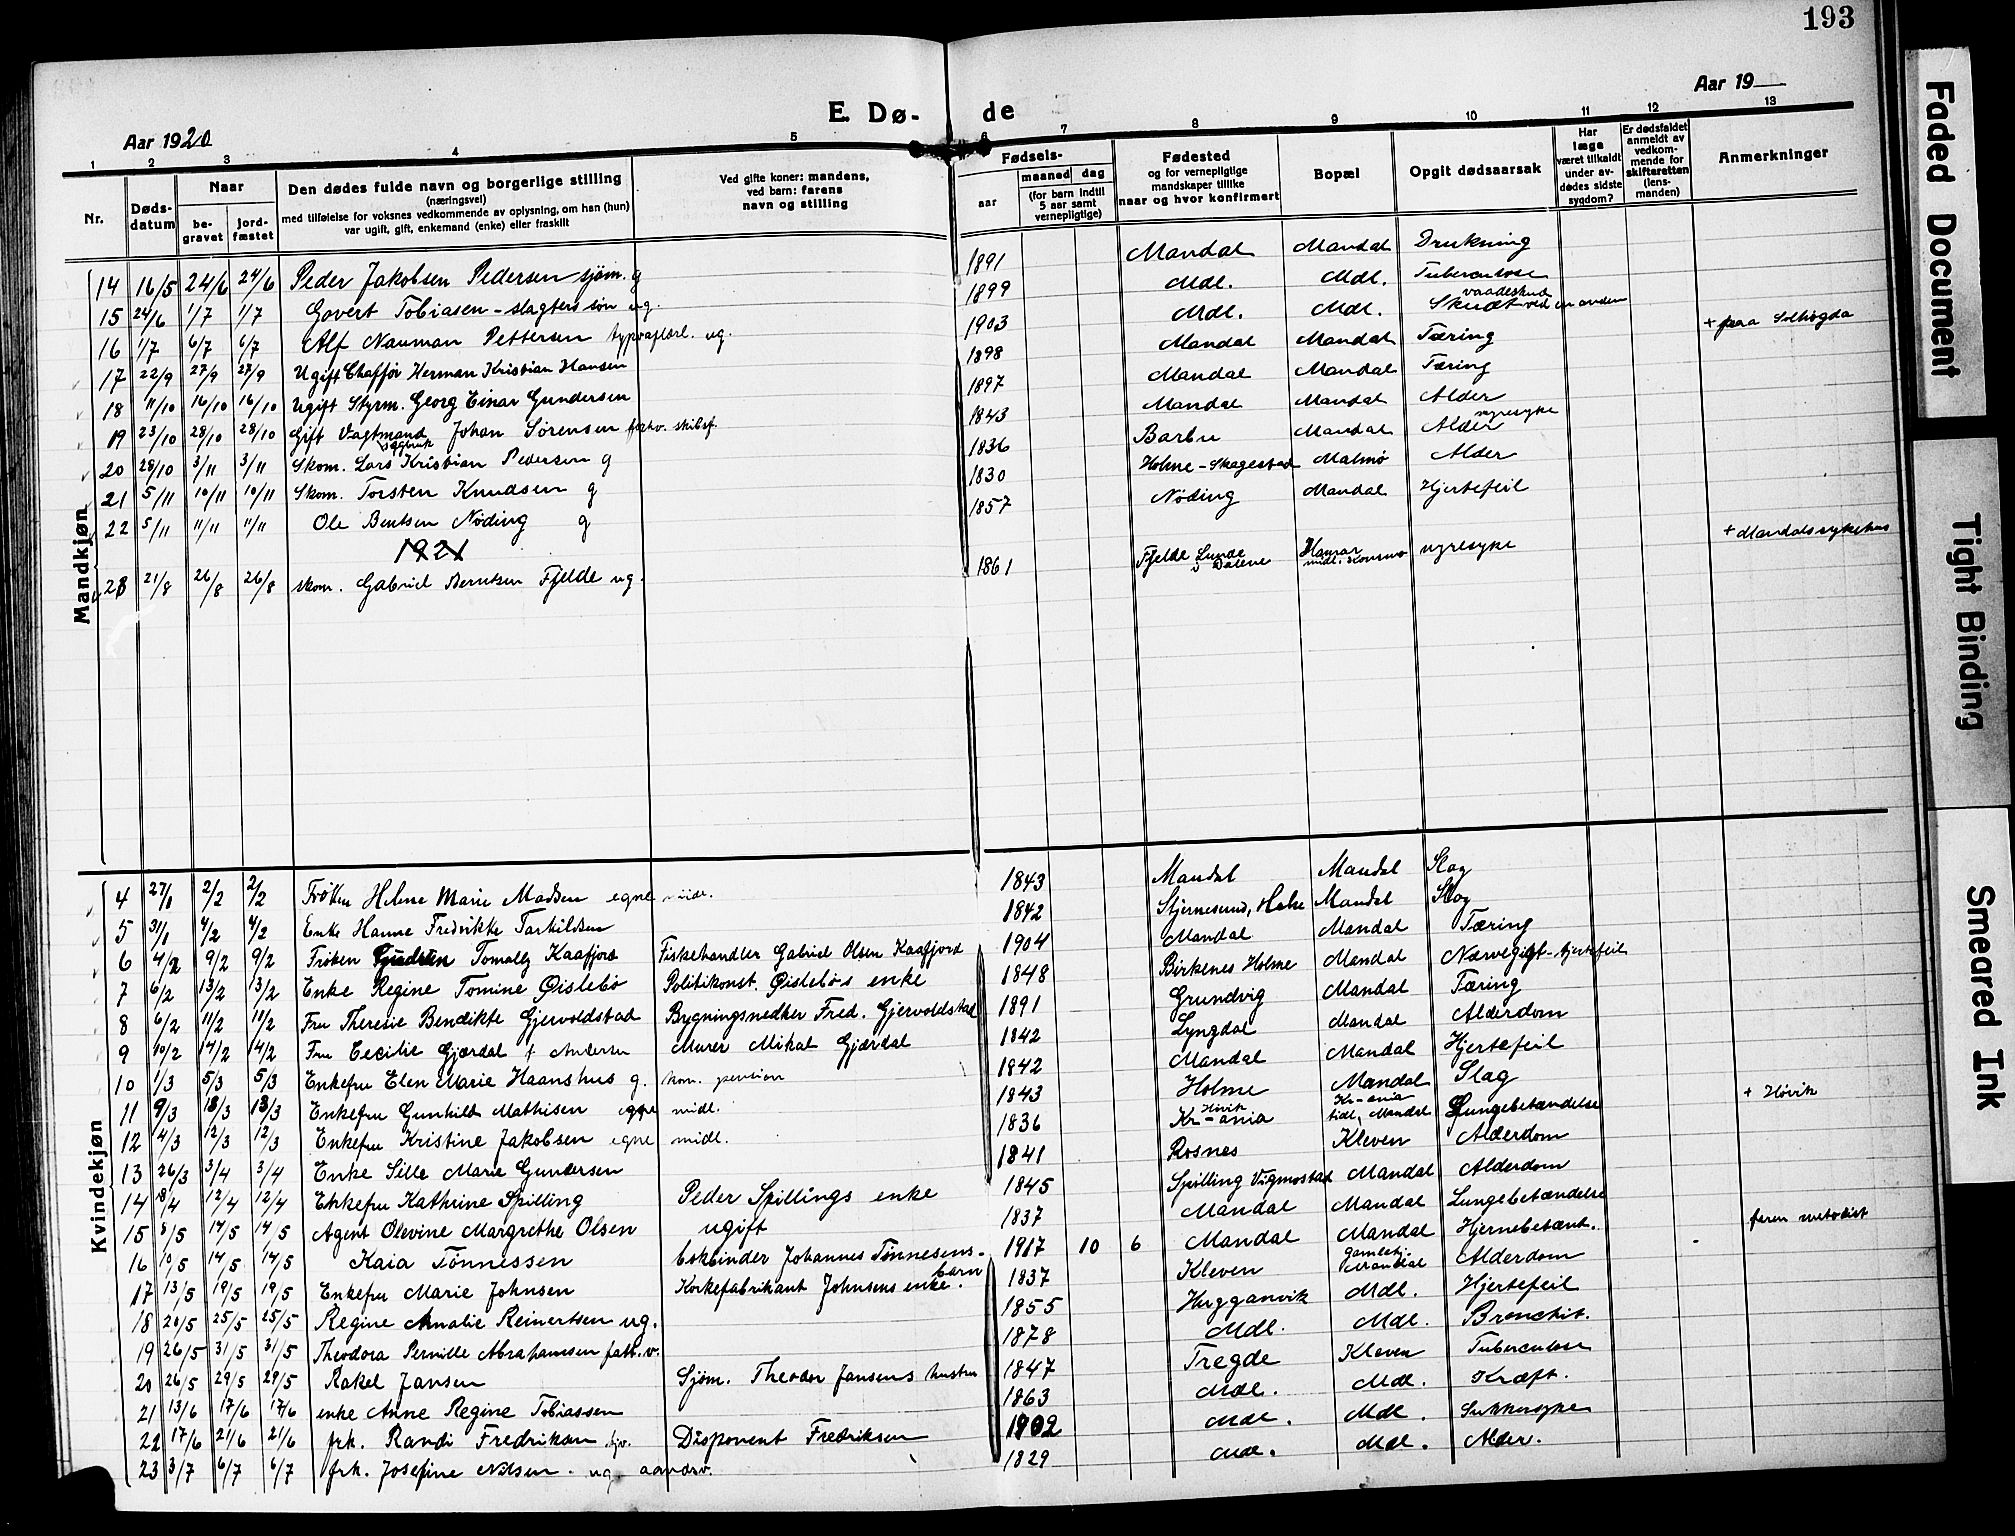 193
Aar 1920
E. Dø-
de
Aar 19
1 2 3 4 5 6 7 8 9 10 11 12 13
Nr.
Døds-
datum
Naar
be-
gravet
jord-
fæstet
Den dødes fulde navn og borgerlige stilling
(næringsvei)
med tilføielse for voksnes vedkommende av oplysning, om han (hun)
var ugift, gift, enkemand (enke) eller fraskilt
Ved gifte koner: mandens,
ved barn: farens
navn og stilling
Fødsels-
aar
maaned dag
(for barn indtil
5 aar samt
vernepligtige)
Fødested
og for vernepligtige
mandskaper tillike
naar og hvor konfirmert
Bopæl
Opgit dødsaarsak
Har
læge
været tilkaldt
under av-
dødes sidste
sygdom?
Er dødsfaldet
anmeldt av
vedkom-
mende for
skifteretten
(lens-
manden)
Anmerkninger
Mandkjøn
14 16/5 24/6 24/6 Peder Jakobsen Pedersen sjøm. g 1891 Mandal Mandal Drukning
15 24/6 1/7 1/7 Govert Tobiasen - slagters søn ug. 1899 Mdl. Mdl. Tuberculose
16 1/7 6/7 6/7 Alf Nauman Pettersen ug. 1903 Mdl. Mdl. Skudt ved en anden vaadeskud
17 22/9 27/9 27/9 Ugift Chaffør Herman Kristian Hansen 1898 Mandal Mandal Tæring + paa
18 11/10 16/10 16/10 Ugift Styrm. Georg Einar Gundersen 1897 Mandal Mandal Tæring
19 23/10 28/10 28/10 Gift Vagtmand Johan Sørensen forhv. skibsf. 1843 Mandal Mandal Alder
20 28/10 3/11 3/11 Skom. Lars Kristian Pedersen g 1836 Barbu Mandal Alder nyresyke
21 5/11 10/11 10/11 Skom. Torsten Knudsen g 1830 Holme - Skagestad Malmø Alder
22 5/11 11/11 11/11 Ole Bentsen Nøding g 1857 Nøding Mandal Hjertefeil
1921
23 21/8 26/8 26/8 skom. Gabriel Berntsen Fjelde ug. 1861 Fjelde Lunde i Dalene Hamar midl. nyresyke + Mandals sykehus
Kvindekjøn
4 27/1 2/2 2/2 Frøken Helene Marie Madsen egne midl. 1843 Mandal Mandal Slag
5 31/1 4/2 4/2 Enke Hanne Fredrikke Tarkildsen 1842 Stjernesund, Holme Mandal Slag
6 4/2 9/2 9/2 Frøken Gudrun Kaafjord Fiskehandler Gabriel Olsen Kaafjord 1904 Mandal Mandal Tæring
7 6/2 13/2 13/2 Enke Regine Tomine Øislebø Politikonst. Øislebøs enke 1848 Birkenes Holme Mandal Nærvegigt - hjertefeil
8 6/2 11/2 11/2 Fru Theresie Bendikte Gjervoldstad Bygningsnedker Fred. Gjervoldstad 1891 Grundvig Mandal Tæring
9 10/2 14/2 14/2 Fru Cecilie Gjærdal f. Andersen Murer Mikal Gjærdal 1842 Lyngdal Mandal Alderdom
10 1/3 5/3 5/3 Enkefru Elen Marie Haanshus g. kom. pension 1842 Mandal Mandal Hjertefeil
11 9/3 13/3 13/3 Enkefru Gunhild Mathisen egne midl. 1843 Holme Mandal Slag
12 14/3 12/3 12/3 Enkefru Kristine Jakobsen egne midl. 1836 Kr-ania Høvik Kr-ania tidl. Mandal Lungebetændelse + Høvik
13 26/3 3/4 3/4 Enke Sille Marie Gundersen 1841 Rosnes Kleven Alderdom
14 8/4 12/4 12/4 Enkefru Kathrine Spilling Peder Spillings enke 1845 Spilling Vigmostad Mandal Alderdom
15 8/5 14/5 14/5 Agent Olevine Margrethe Olsen ugift 1837 Mandal Mandal Lungebetændelse
16 10/5 14/5 14/5 Kaia Tønnessen bokbinder Johannes Tønnesens barn 1917 10 6 Mandal Mandal Hjernebetænt. faren metodist
17 13/5 19/5 19/5 Enkefru Marie Johnsen Korkefabrikant Johnsens enke. 1837 Kleven Mandal Alderdom
18 20/5 25/5 25/5 Regine Amalie Reinertsen ug. 1855 Hugganvik Mdl. Hjertefeil
19 26/5 31/5 31/5 Theodora Pernille Abrahamsen fatt. v. 1878 Mdl. Mdl. Bronchit.
20 26/5 29/5 29/5 Rakel Jansen Sjøm. Theodor Jansens hustru 1847 Tregde Kleven Tuberculose
21 13/6 17/6 17/6 enke Anne Regine Tobiassen 1863 Mdl. Mdl. Kræft.
22 17/6 21/6 21/6 frk. Randi Fredriksen Disponent Fredriksen 1902 Mdl. Mdl. Sukkersyke
23 3/7 6/7 6/7 frk. Josefine Nilsen. ug. 1829 Mdl. Mdl. Alder.
Faded Document
Tight Binding
Smeared Ink